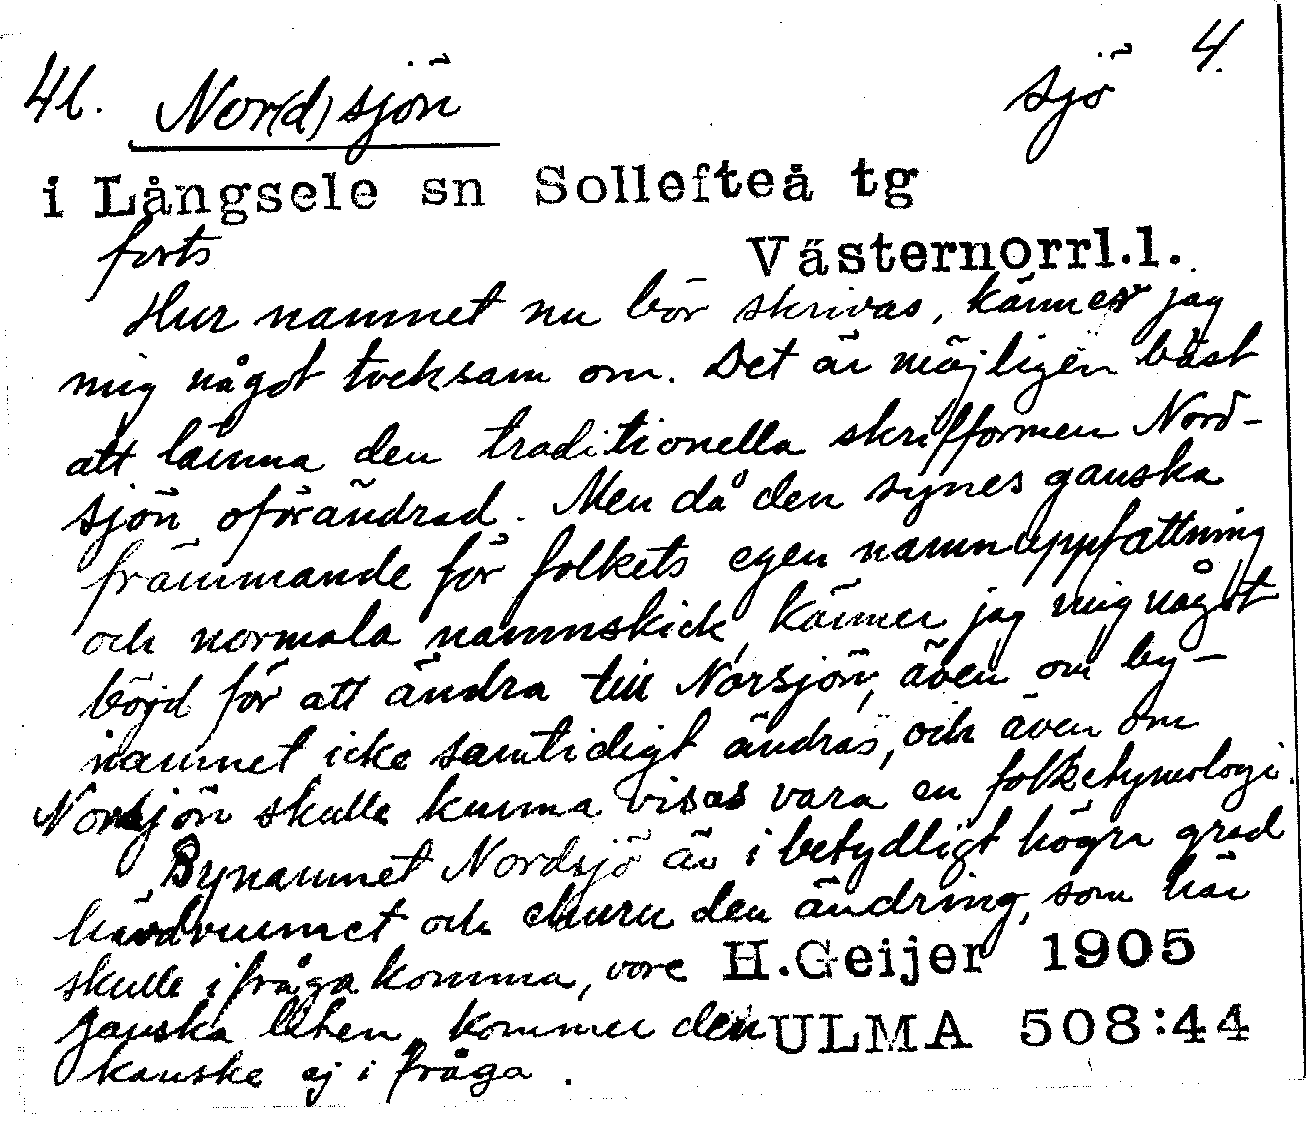 41. Nor(d)sjön sjö 4.
i Långsele sn Sollefteå tg
forts Västernorrl.l.
Hur namnet nu bör skrivas, känner jag
mig något tveksam om. Det är möjligen bäst
att lämna den traditionella skriftformen Nord-
sjön oförändrad. Men då den synes ganska
främmande för folkets egen namnuppfattning
och normala namnskick, känner jag mig något
böjd för att ändra till Norsjön, även om by-
namnet icke samtidigt ändras, och även om
Norsjön skulle kunna visas vara en folketymologi.
Bynamnet Nordsjö är i betydligt högre grad
hävdvunnet och ehuru den ändring, som här
skulle ifrågakomma, vore H.Geijer 1905
ganska liten, kommer den ULMA 508:44
kanske ej i fråga.